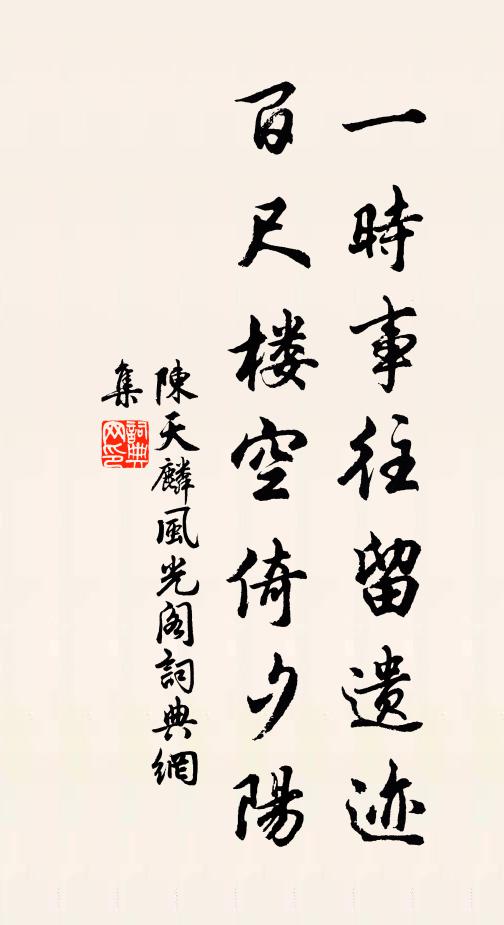 一時事往留遗迹
百尺楼空倚夕陽
陳天麟風光阁詞典網
集
詞典
网印